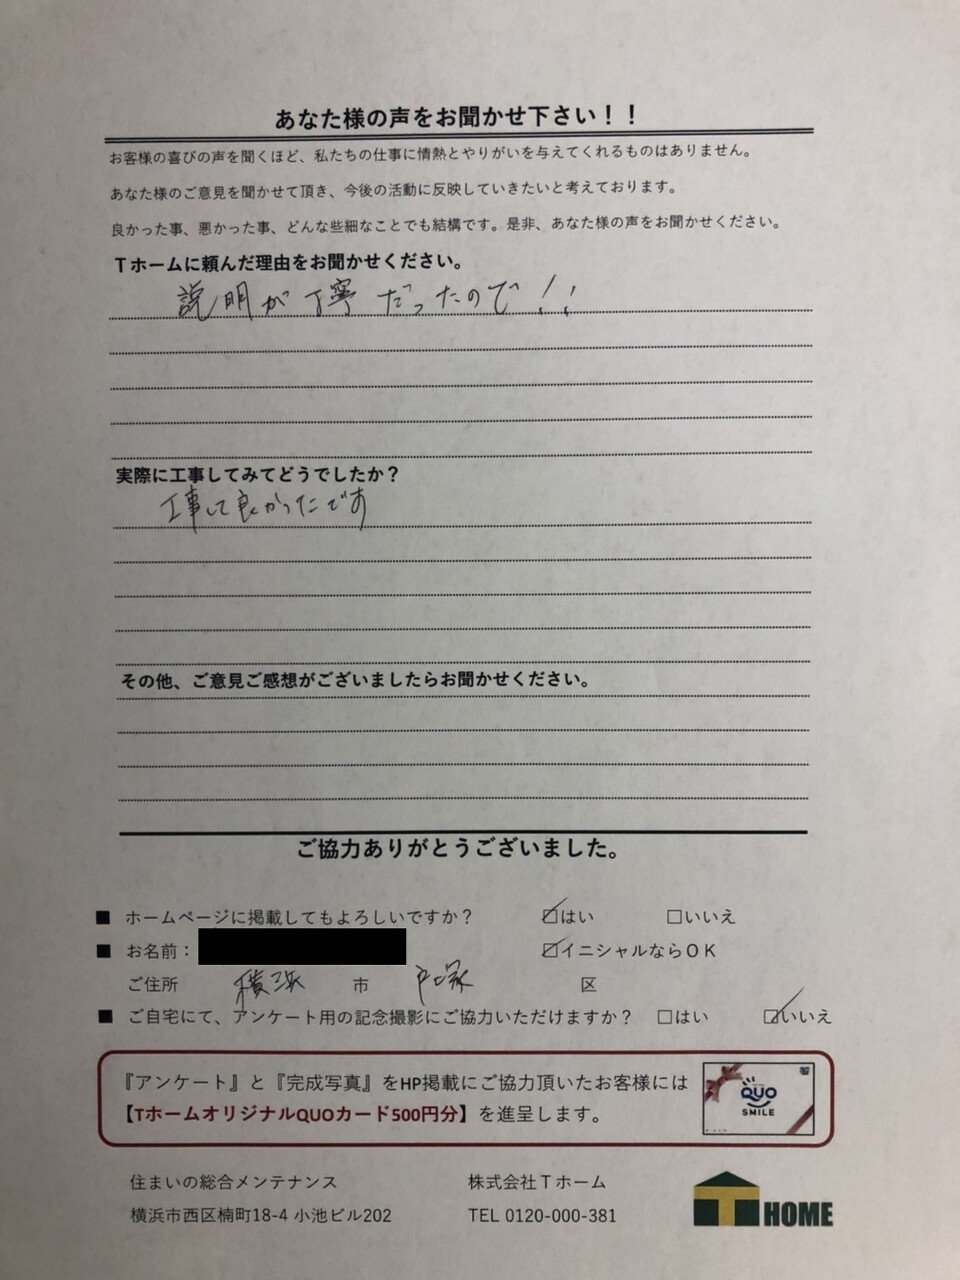 あなた様の声をお聞かせ下さい！！
お客様の喜びの声を聞くほど、私たちの仕事に情熱とやりがいを与えてくれるものはありません。
あなた様のご意見を聞かせて頂き、今後の活動に反映していきたいと考えております。
良かった事、悪かった事、どんな些細なことでも結構です。是非、あなた様の声をお聞かせください。
Ｔホームに頼んだ理由をお聞かせください。
説明が丁寧だったので！！
実際に工事してみてどうでしたか？
工事して良かったです
その他、ご意見ご感想がございましたらお聞かせください。
ご協力ありがとうございました。
■ ホームページに掲載してもよろしいですか？ ☑はい □いいえ
■ お名前： ☑イニシャルならＯＫ
ご住所 横浜 市 戸塚 区
■ ご自宅にて、アンケート用の記念撮影にご協力いただけますか？ □はい ☑いいえ
『アンケート』と『完成写真』をHP掲載にご協力頂いたお客様には
【TホームオリジナルQUOカード500円分】を進呈します。
QUO
SMILE
住まいの総合メンテナンス 株式会社Ｔホーム
横浜市西区楠町18-4 小池ビル202 TEL 0120-000-381
T HOME